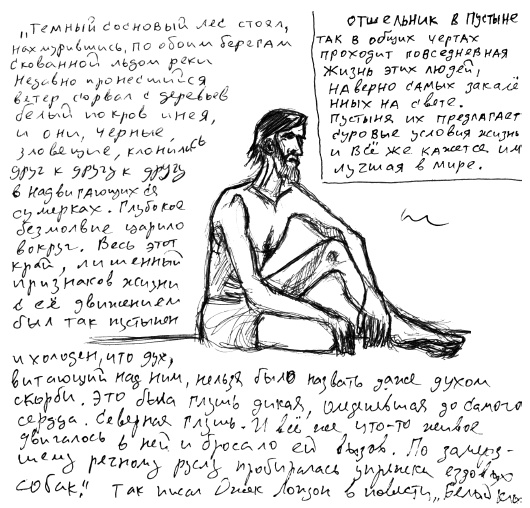 „Темный сосновый лес стоял,
нахмурившись, по обоим берегам
скованной льдом реки
Недавно пронесшийся
ветер сорвал с деревьев
белый покров инея,
и они, черные,
зловещие, клонились
друг к другу к другу
в надвигающихся
сумерках. Глубокое
безмолвие царило
вокруг. Весь этот
край, лишенный
признаков жизни
с её движением
был так пустынен
и холоден, что дух,
витающий над ним, нельзя было назвать даже духом
скорби. Это была глушь дикая, оледеневшая до самого
сердца. Северная глушь. И всё же что-то живое
двигалось в ней и бросало ей вызов. По замерз-
шему речному руслу пробиралась упряжка ездовых
собак." Так писал Джек Лондон в повести „Белый клык
отшельник в Пустыне
так в общих чертах
проходит повседневная
жизнь этих людей,
наверно самых закалё
нных на свете.
Пустыня их предлагает
суровые условия жизни
и всё же кажется им
лучшая в мире.